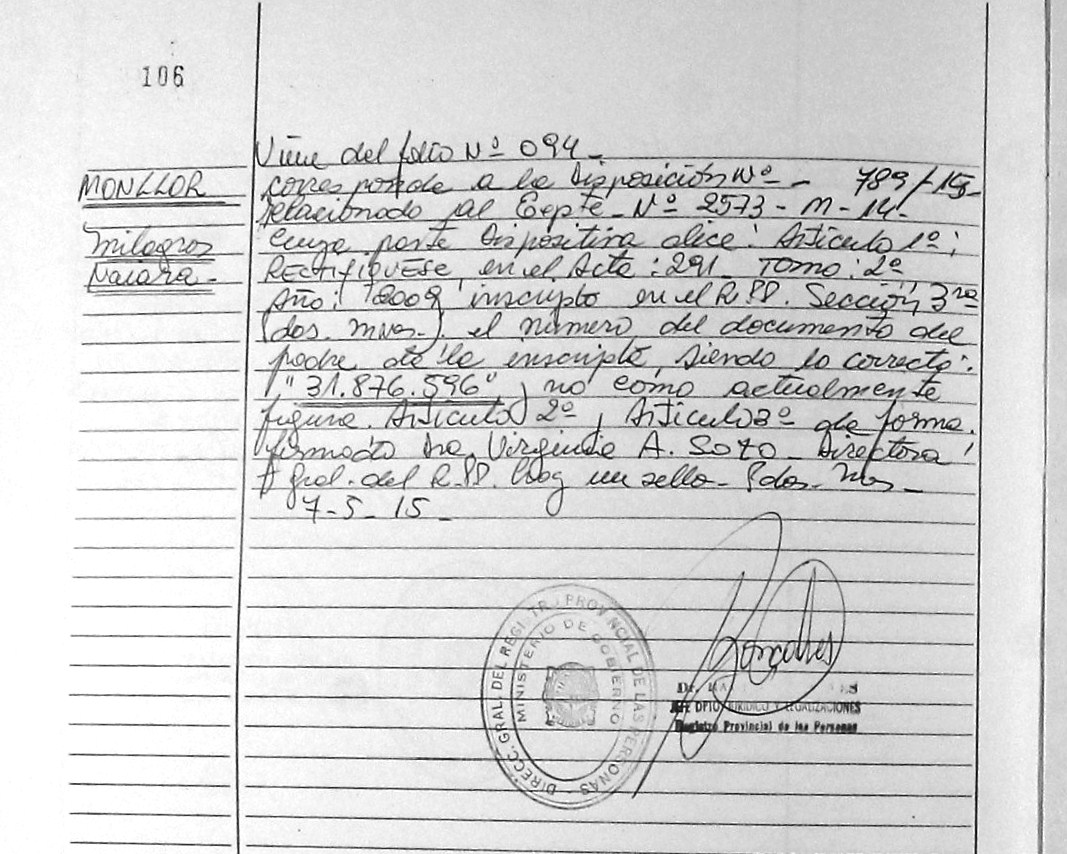 106
Viene del folio Nº 094 -
MONLLOR
Milagros
Naiara -
corresponde a la Disposición Nº - 789/15-
relacionado al Expte - Nº 2573 - M - 14 -
cuya parte Dispositiva dice: Artículo 1º;
RECTIFIQUESE, en el Acta: 291 Tomo: 2º
Año: 2009, inscripto en el R.PP. Sección 3ra
(dos. mvos.), el número del documento del
padre de la inscripta, siendo lo correcto:
"31.876.596", no como actualmente
figura. Artículo 2º, Artículo 3º de forma.
firmado Dra. Virginia A. Soto - Directora
Gral. del R.PP. Hay un sello - Pdos - Mos -
7-5-15-
DIRECC. GRAL. DEL REGISTRO PROVINCIAL DE LAS PERSONAS
MINISTERIO DE GOBIERNO
Gonzales
DPTO. JURIDICO Y LEGALIZACIONES
Registro Provincial de las Personas